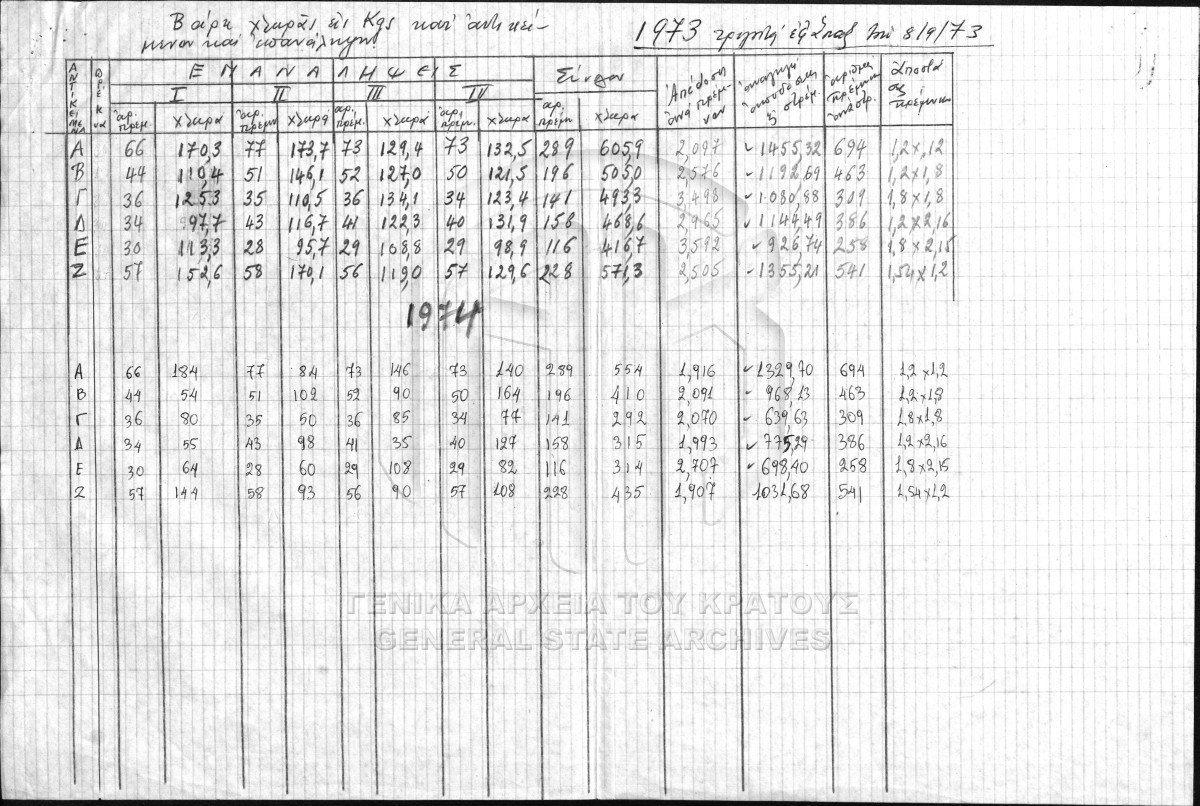 Βάρη χλωρᾶς εἰς Kgs κατ' ἀντικεί-
μενον καὶ ἐπανάληψιν
1973 τρυγητὴ ἐξ 8/9/73
ΑΝΤΙΚΕΙΜΕΝΑ ΕΠΑΝΑΛΗΨΕΙΣ Σύνολον Ἀπόδοσις ἀνὰ πρέμνον ἀριθμὸς πρέμνων ἀνὰ στρ. Ἀποστάσεις πρέμνων
I II III IV
ἀρ. πρεμ. χλωρά ἀρ. πρεμν. χλωρά ἀρ. πρεμ. χλωρά ἀρ. πρεμν. χλωρά ἀρ. πρεμν χλωρα
Α 66 170,3 77 173,7 73 129,4 73 132,5 289 605,9 2,097 ✓1455,32 694 1,2×1,2
Β 44 110,4 51 146,1 52 127,0 50 121,5 196 505,0 2,576 ✓1192,69 463 1,2×1,8
Γ 36 125,3 35 110,5 36 134,1 34 123,4 141 493,3 3,498 ✓1080,88 309 1,8×1,8
Δ 34 97,7 43 116,7 41 122,3 40 131,9 158 468,6 2,965 ✓1144,49 386 1,2×2,16
Ε 30 113,3 28 95,7 29 108,8 29 98,9 116 416,7 3,592 ✓926,74 258 1,8×2,15
Ζ 57 152,6 58 170,1 56 119,0 57 129,6 228 571,3 2,505 ✓1355,21 541 1,54×1,2
1974
Α 66 184 77 84 73 146 73 140 289 554 1,916 ✓1329,70 694 1,2×1,2
Β 44 54 51 102 52 90 50 164 196 410 2,091 ✓968,13 463 1,2×1,8
Γ 36 80 35 50 36 85 34 77 141 292 2,070 ✓639,63 309 1,8×1,8
Δ 34 55 43 98 41 35 40 127 158 315 1,993 ✓775,29 386 1,2×2,16
Ε 30 64 28 60 29 108 29 82 116 314 2,707 ✓698,40 258 1,8×2,15
Ζ 57 144 58 93 56 90 57 108 228 435 1,907 1031,68 541 1,54×1,2
ΓΕΝΙΚΑ ΑΡΧΕΙΑ ΤΟΥ ΚΡΑΤΟΥΣ
GENERAL STATE ARCHIVES